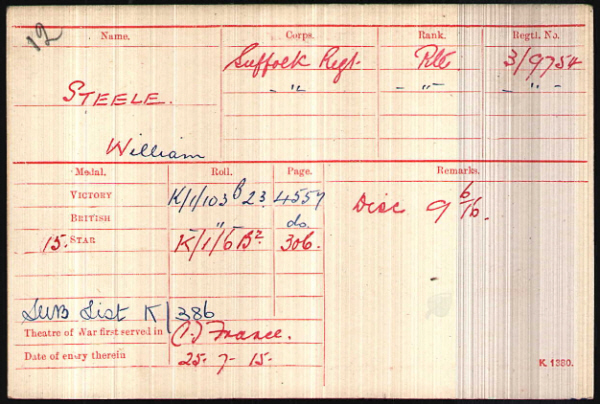 12
Name. Corps. Rank. Regtl. No.
Suffolk Regt. Pte 3/9754
STEELE. - " - - " - - " -
William
Medal. Roll. Page. Remarks.
VICTORY K/1/103 B 23. 4557 Disc 9/6/16.
BRITISH - " - do.
15. STAR K/1/6 B2. 306.
SWB List K/386
Theatre of War first served in (1.) France.
Date of entry therein 25. 7. 15.
K. 1380.